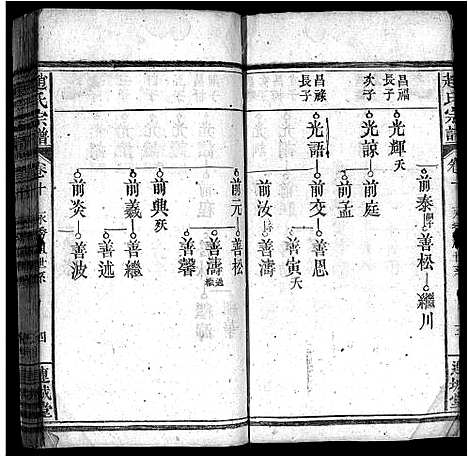 趙氏宗譜
卷十
連城堂
昌福
長子
光輝 夭
次子
光諒
昌祿
長子
光語
前泰
善松
繼川
前庭
前孟
前交
善恩
善寅 夭
前汝
善濤
前元
善松
善濤 過繼
善馨
前典 歿
前義
善繼
善述
前炎
善波
趙氏宗譜
卷十
世系
四
連城堂